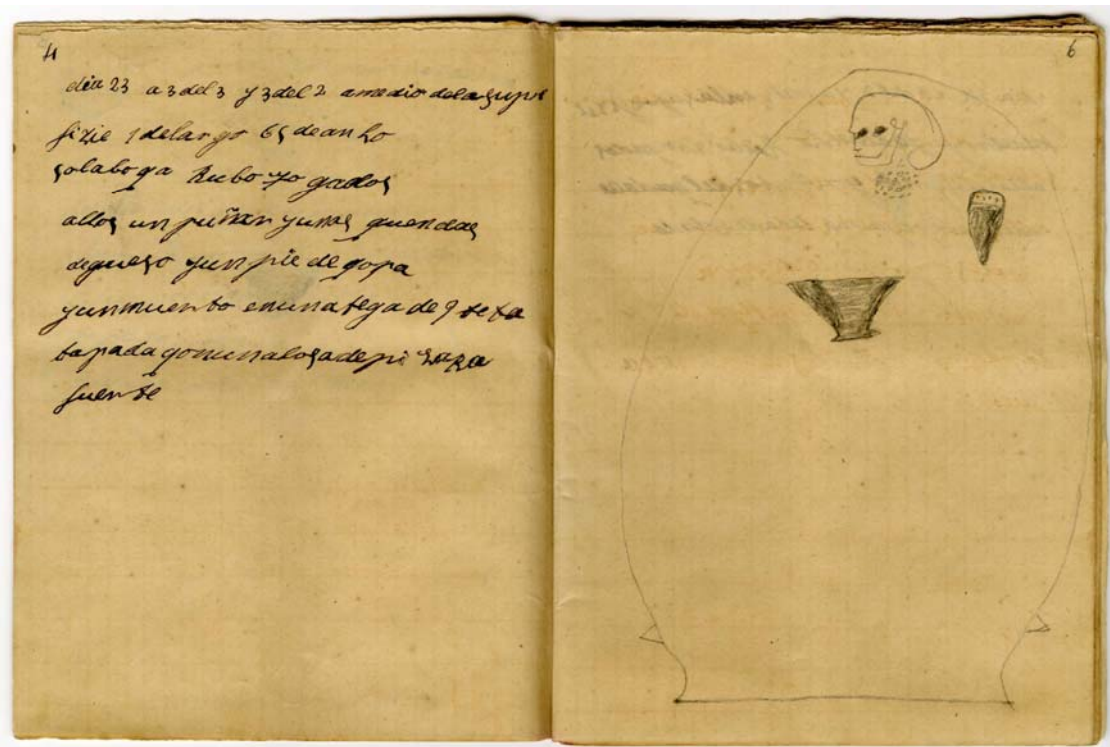 4
dia 23 a 3 del 3 y 3 del 2 a medio dela supr
fizie 1 delargo 65 deanho
solaboga hubo
allos un puñar yunas quendas
degueso yun pie de gopa
yunmuento enunatega de 9 teta
tapada gonunalosadepi
fuente
6